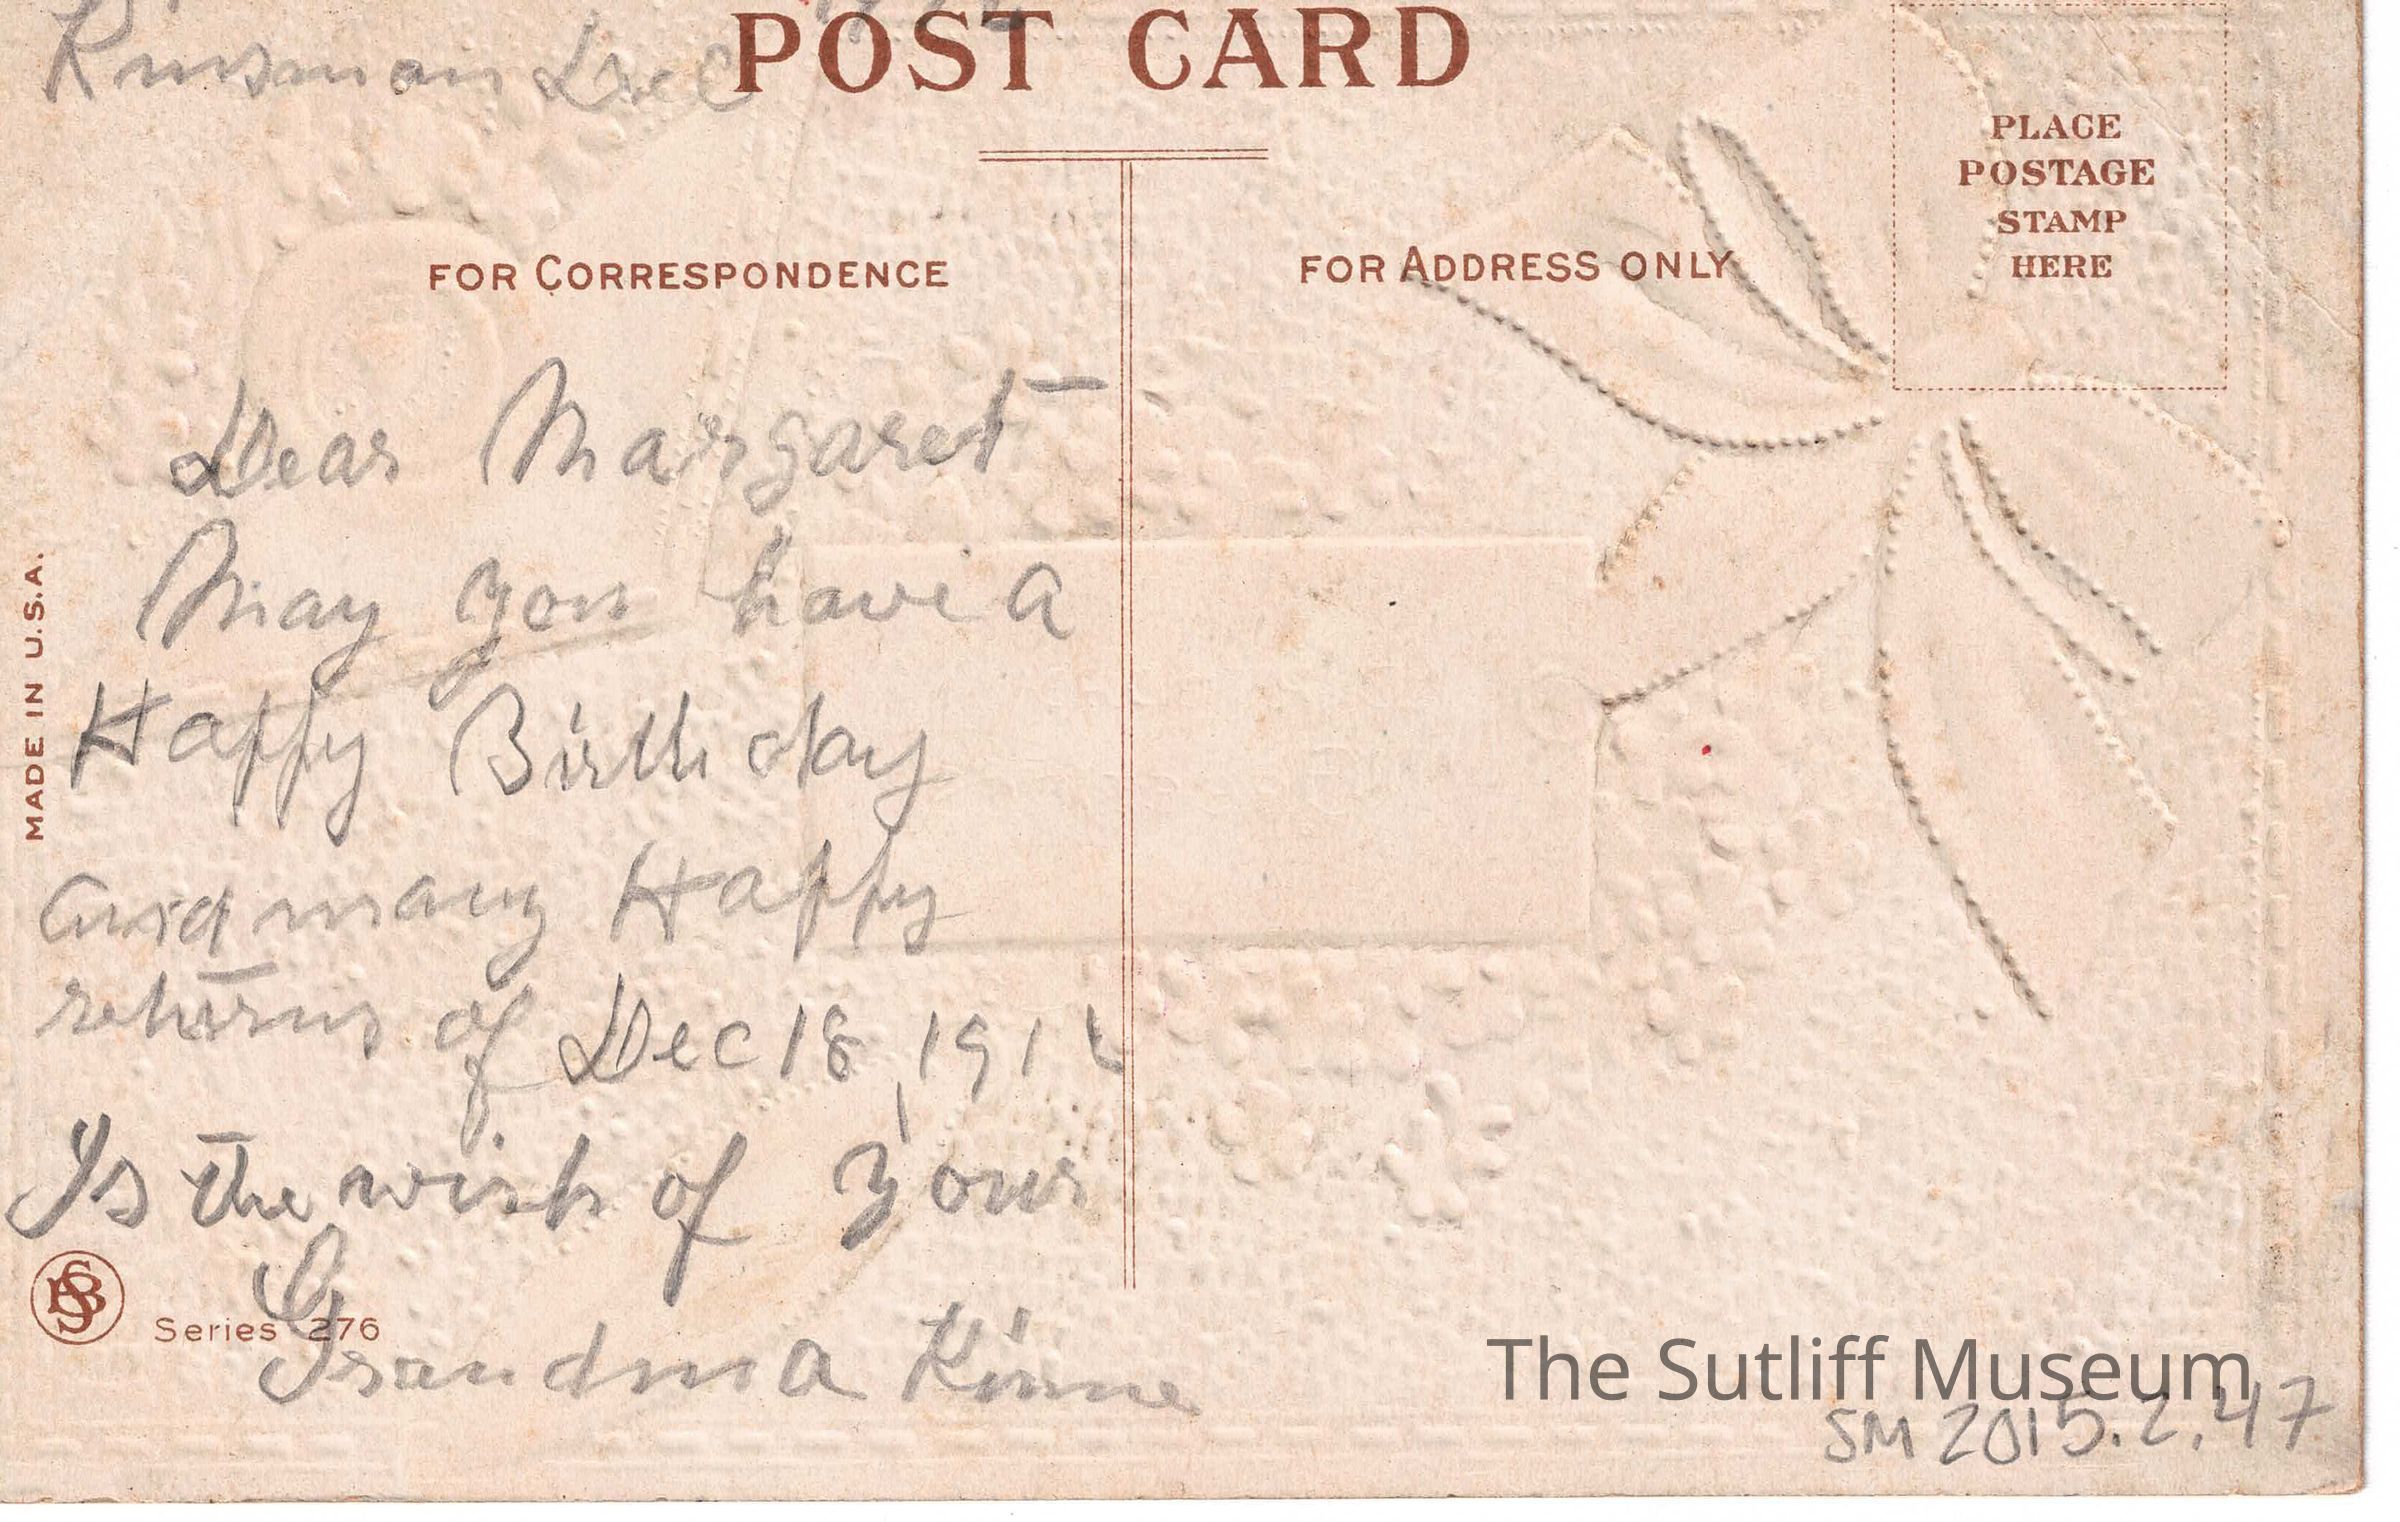 Kinsman Dec
POST CARD
PLACE
POSTAGE
STAMP
HERE
FOR CORRESPONDENCE
FOR ADDRESS ONLY
Dear Margaret
May you have a
Happy Birth day
and many Happy
returns of Dec 18, 191
Is the wish of your
Grandma Kinne
MADE IN U.S.A.
SB
Series 276
The Sutliff Museum
SM 2015.2.47